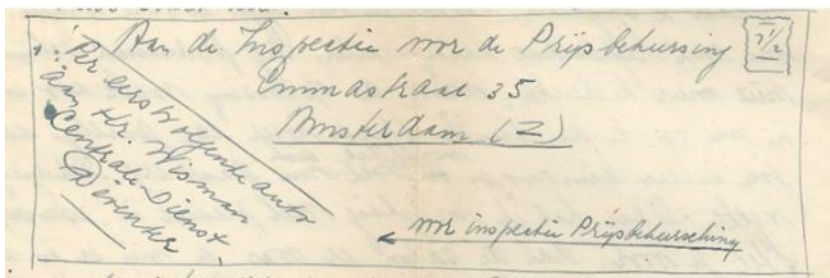 Aan de Inspectie voor de Prijsbeheersing
7½
Emmastraat 35
Amsterdam (Z)
Per eerstvolgende auto
aan Hr. Wisman
Centrale Dienst
voor inspectie Prijsbeheersching